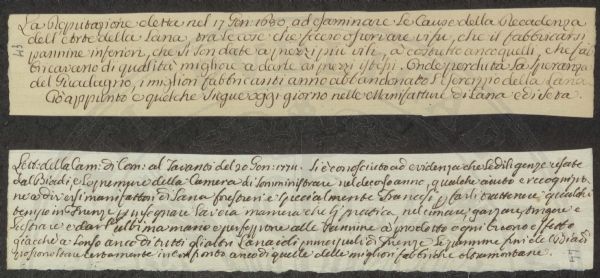 La Deputazione eletta nel 17 Gen: 1680, ad esaminare le Cause della Decadenza
dell'Arte della Lana, tra le cose che fece osservare vi fu, che il fabbricarsi
pannine inferiori, che si son date a prezzi più vili, à costretto anco quelli, che fab
bricavano di qualità migliore a darle a prezzi stessi. Onde perduta la speranza
del Guadagno, i migliori fabbricanti anno abbandonato l'esercizio della Lana
Ciò appunto è quel che segue oggi giorno nelle Manifatture di Lana e di Seta.
43
Lett: della Cam: di Com: al Tavanti del 20 Gen: 1774. Si è conosciuto ad evidenza che le diligenze usate
dal Biadi, e le premure della Camera di somministrare nel decorso anno, qualche aiuto e recognizio
ne a diversi manifattori di Lana forestieri e specialmente Francesi per farli trattenere qualche
tempo in Firenze per insegnare la vera maniera che si pratica nel cimare, garzare, tingere e
lustrare e dar l'ultima mano e perfezione alle Pannine à prodotto ogni buono effetto
giacchè a senso anco di tutti gl'altri Lanaioli principali di Firenze le pannine fini del Biadi
reggono sicuramente in confronto anco di quelle delle migliori fabbriche oltramontane.